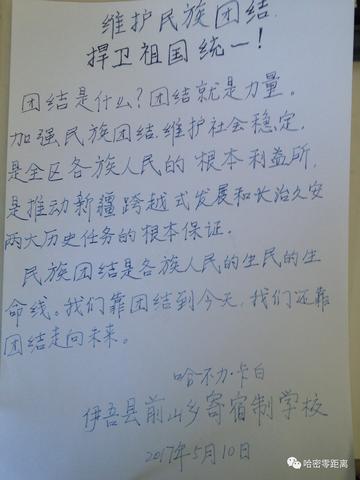 维护民族团结,
捍卫祖国统一!
团结是什么?团结就是力量。
加强民族团结,维护社会稳定,
是全区各族人民的根本利益所,
是推动新疆跨越式发展和长治久安
两大历史任务的根本保证.
民族团结是各族人民的生民的生
命线。我们靠团结到今天,我们还靠
团结走向未来。
哈不力·卡白
伊吾县前山乡寄宿制学校
2017年5月10日
哈密零距离